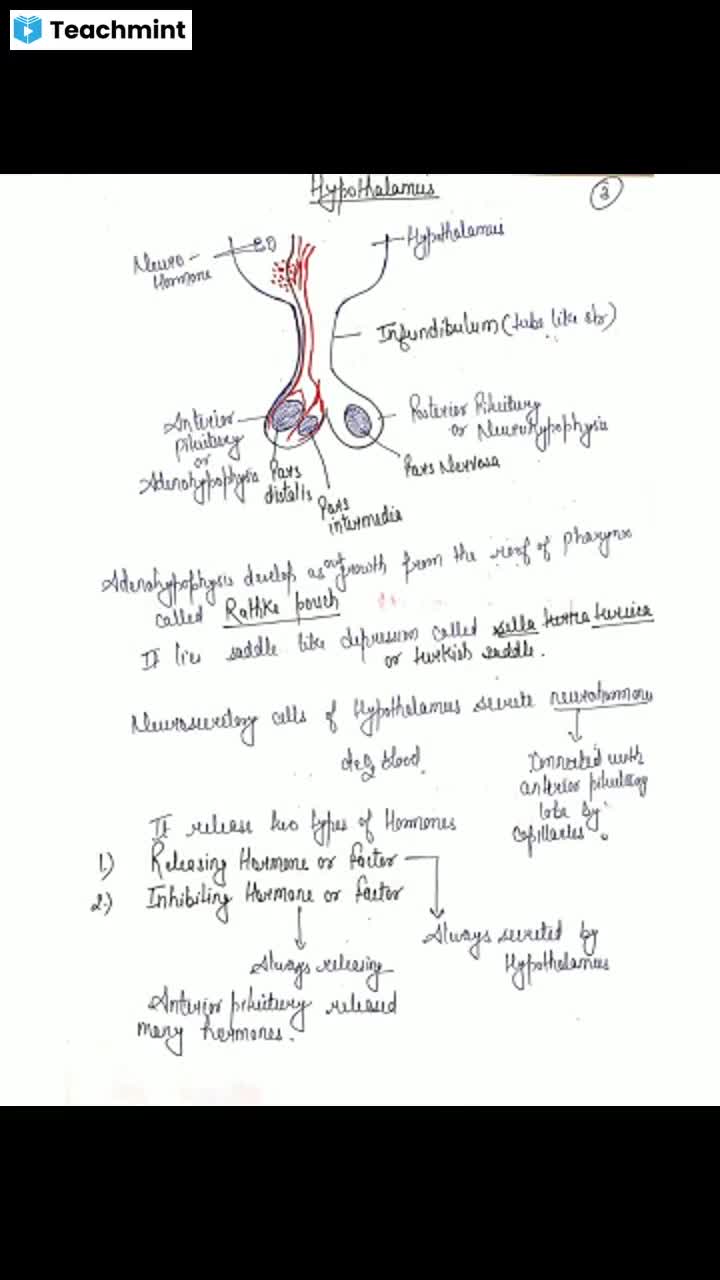 Teachmint
Hypothalamus
3
Neuro-
Hormone
Hypothalamus
Infundibulum (tube like str)
Anterior
Pituitary
or
Adenohypophysis
Posterior Pituitary
or Neurohypophysis
Pars
distalis
Pars Nervosa
Pars
intermedia
Adenohypophysis develop as out growth from the roof of Pharynx
called Rathke pouch
It lies saddle like depression called sella turcica
or turkish saddle.
Neurosecretory cells of Hypothalamus secrete neurohormone
blood
Connected with
anterior pituitary
lobe by
Capillaries.
It release two types of Hormones
1.) Releasing Hormone or factor
2.) Inhibiting Hormone or factor
Always secreted by
Hypothalamus
Always releasing
Anterior pituitary released
many hormones.